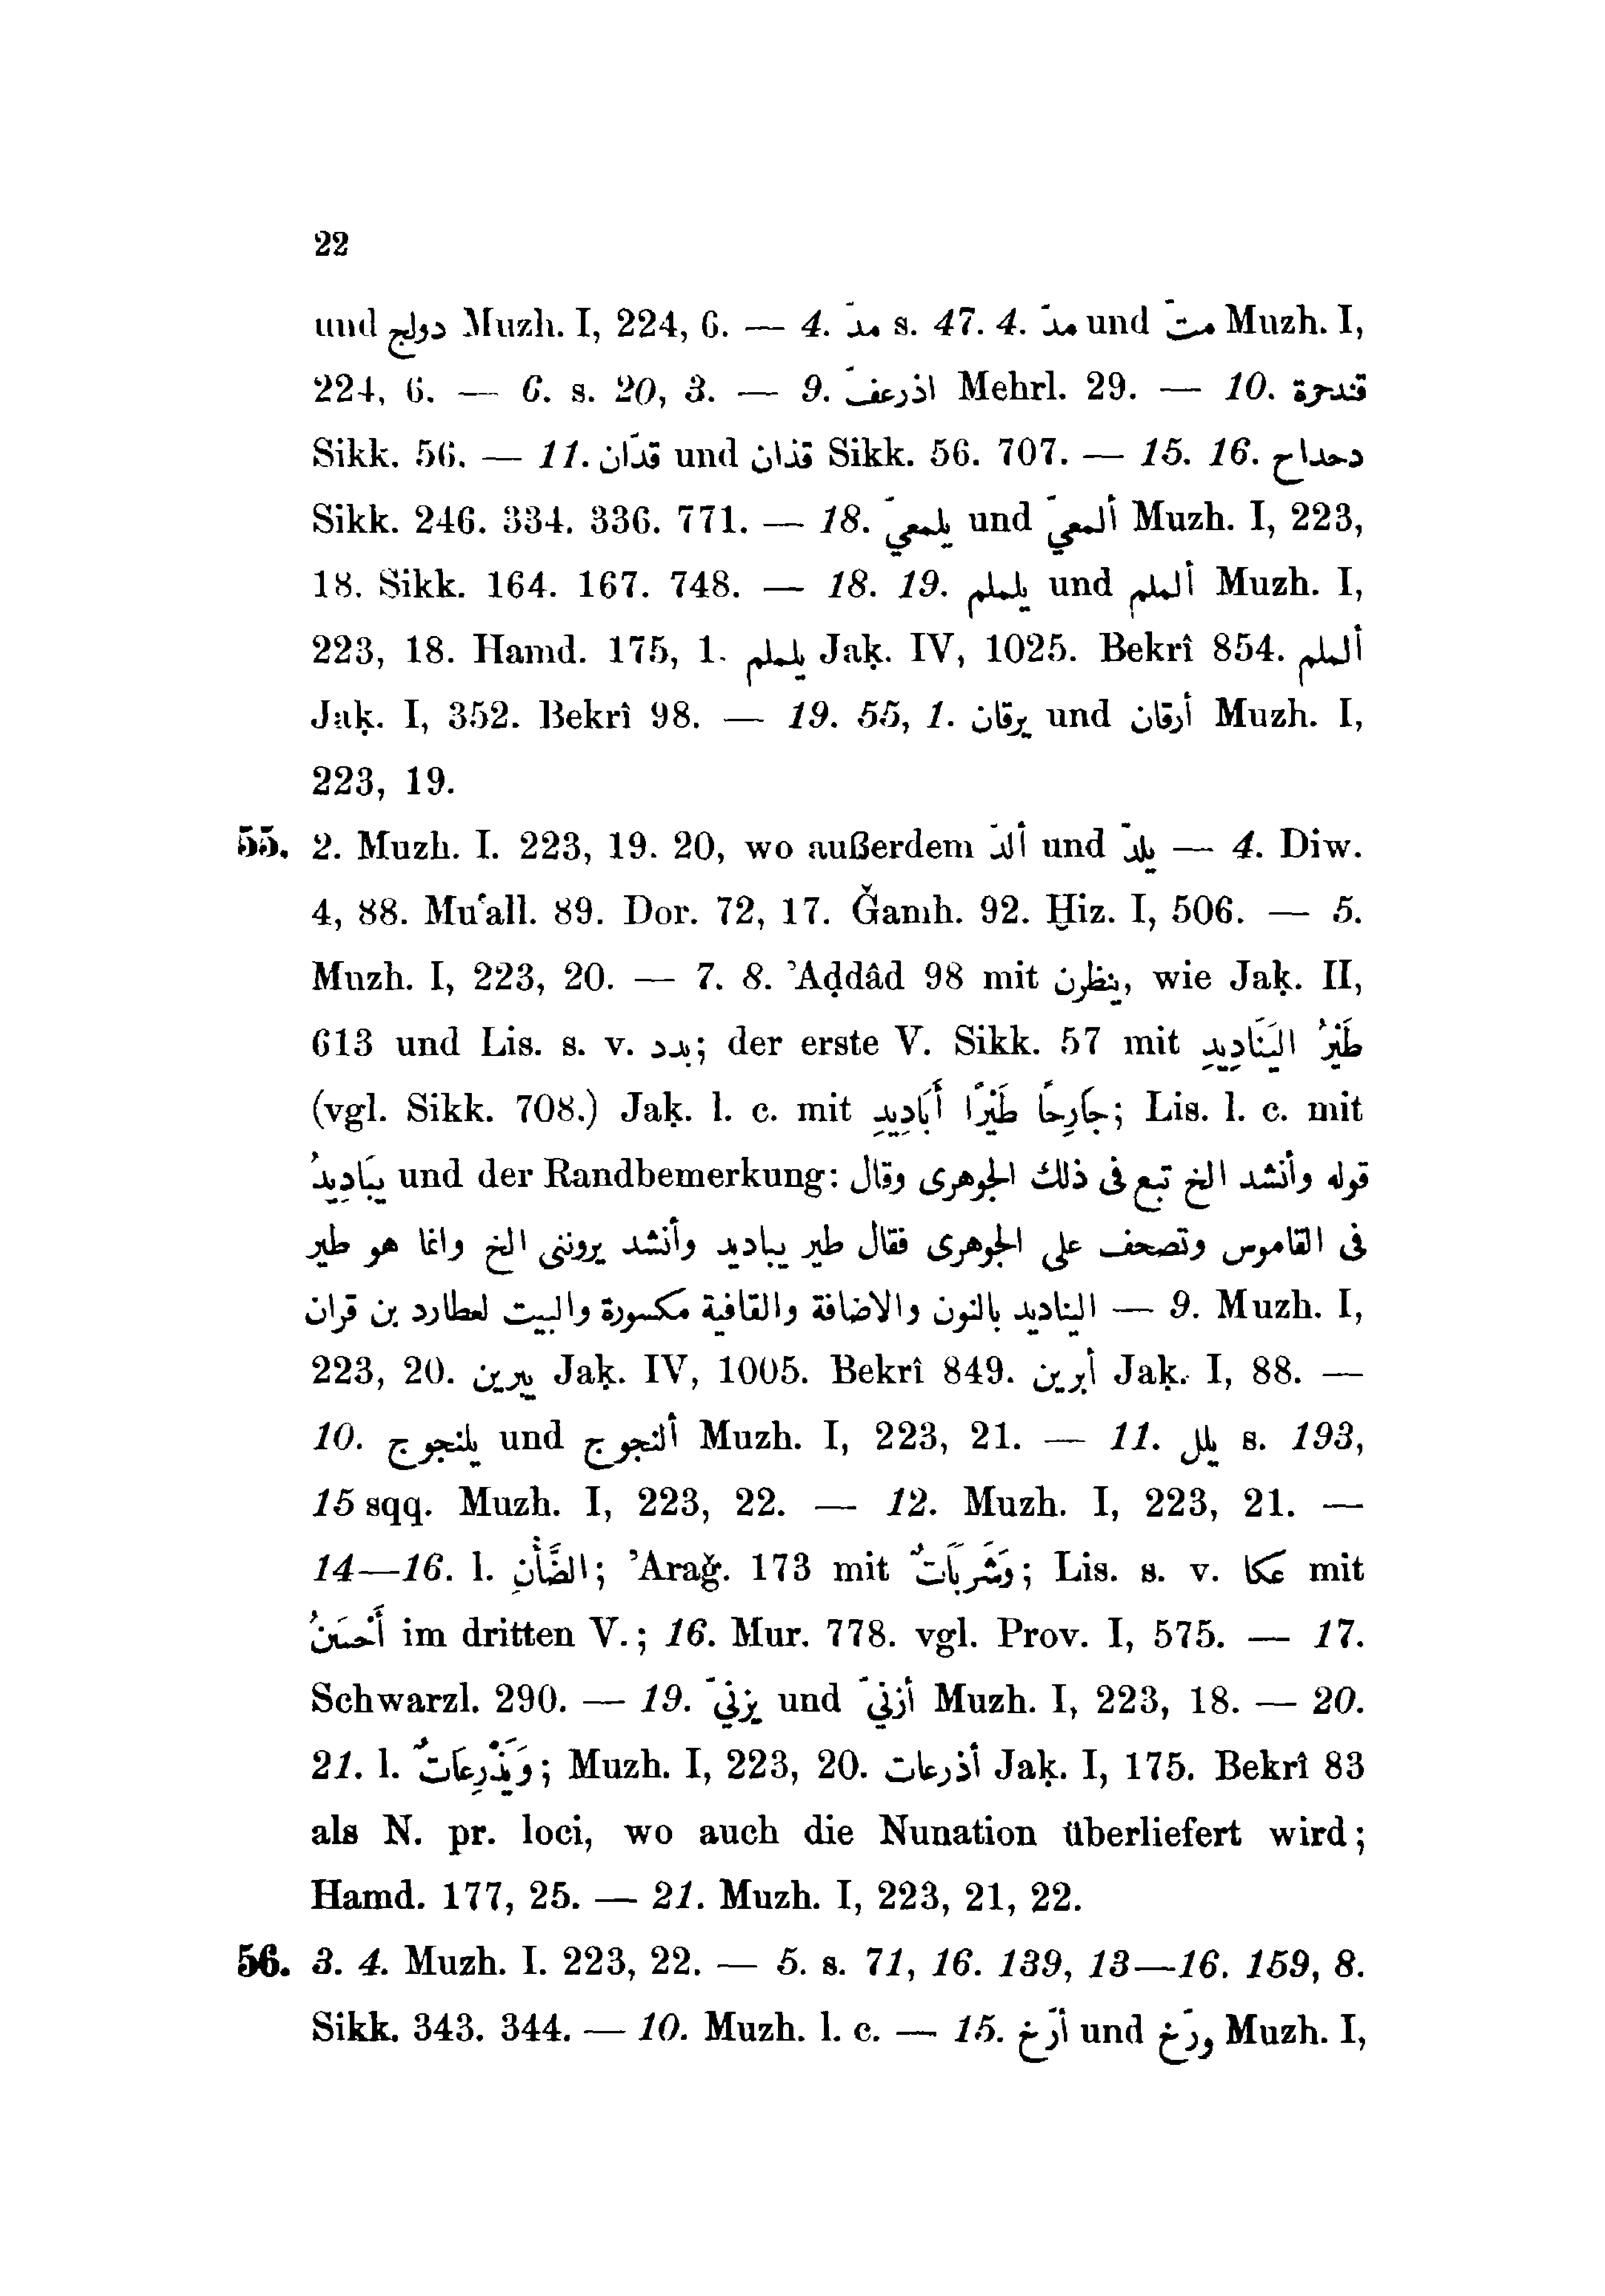 22
und دولج Muzh. I, 224, 6. — 4. مدّ s. 47. 4. مدّ und متّ Muzh. I,
224, 6. — 6. s. 20, 3. — 9. اذرعفّ Mehrl. 29. — 10. قندحرة
Sikk. 56. — 11. قدّان und قذان Sikk. 56. 707. — 15. 16. دحداح
Sikk. 246. 334. 336. 771. — 18. يلمعيّ und ألمعيّ Muzh. I, 223,
18. Sikk. 164. 167. 748. — 18. 19. يلملم und ألملم Muzh. I,
223, 18. Hamd. 175, 1. يلملم Jaḳ. IV, 1025. Bekrî 854. ألملم
Jaḳ. I, 352. Bekrî 98. — 19. 55, 1. يرقان und أرقان Muzh. I,
223, 19.
55. 2. Muzh. I. 223, 19. 20, wo außerdem ألدّ und يلدّ — 4. Diw.
4, 88. Muʿall. 89. Dor. 72, 17. Ǧamh. 92. Ḫiz. I, 506. — 5.
Muzh. I, 223, 20. — 7. 8. ʾAḍdâd 98 mit ينظرن, wie Jaḳ. II,
613 und Lis. s. v. بدد; der erste V. Sikk. 57 mit طَيْرُ اليَنَادِيدِ
(vgl. Sikk. 708.) Jaḳ. l. c. mit جَارِحًا طَيْرًا أَبَادِيدِ; Lis. l. c. mit
يَبَادِيدُ und der Randbemerkung: قوله وأنشد الخ تبع فى ذلك الجوهرى وقال
فى القاموس وتصحف على الجوهرى فقال طير يباديد وأنشد يرونني الخ وانما هو طير
اليناديد بالنون والاضافة والقافية مكسورة والبيت لعطارد بن قران — 9. Muzh. I,
223, 20. يبرين Jaḳ. IV, 1005. Bekrî 849. أبرين Jaḳ. I, 88. —
10. يلنجوج und ألنجوج Muzh. I, 223, 21. — 11. يلل s. 193,
15 sqq. Muzh. I, 223, 22. — 12. Muzh. I, 223, 21. —
14—16. l. الضَّأْنِ; ʾAraǧ. 173 mit وَشَرِبَاتٌ; Lis. s. v. عكا mit
أَحْسَنُ im dritten V.; 16. Mur. 778. vgl. Prov. I, 575. — 17.
Schwarzl. 290. — 19. يزنيّ und أزنيّ Muzh. I, 223, 18. — 20.
21. l. وَيَذْرِعَاتٌ; Muzh. I, 223, 20. أذرعات Jaḳ. I, 175. Bekrî 83
als N. pr. loci, wo auch die Nunation überliefert wird;
Hamd. 177, 25. — 21. Muzh. I, 223, 21, 22.
56. 3. 4. Muzh. I. 223, 22. — 5. s. 71, 16. 139, 13—16. 159, 8.
Sikk. 343. 344. — 10. Muzh. l. c. — 15. أرّخ und ورّخ Muzh. I,